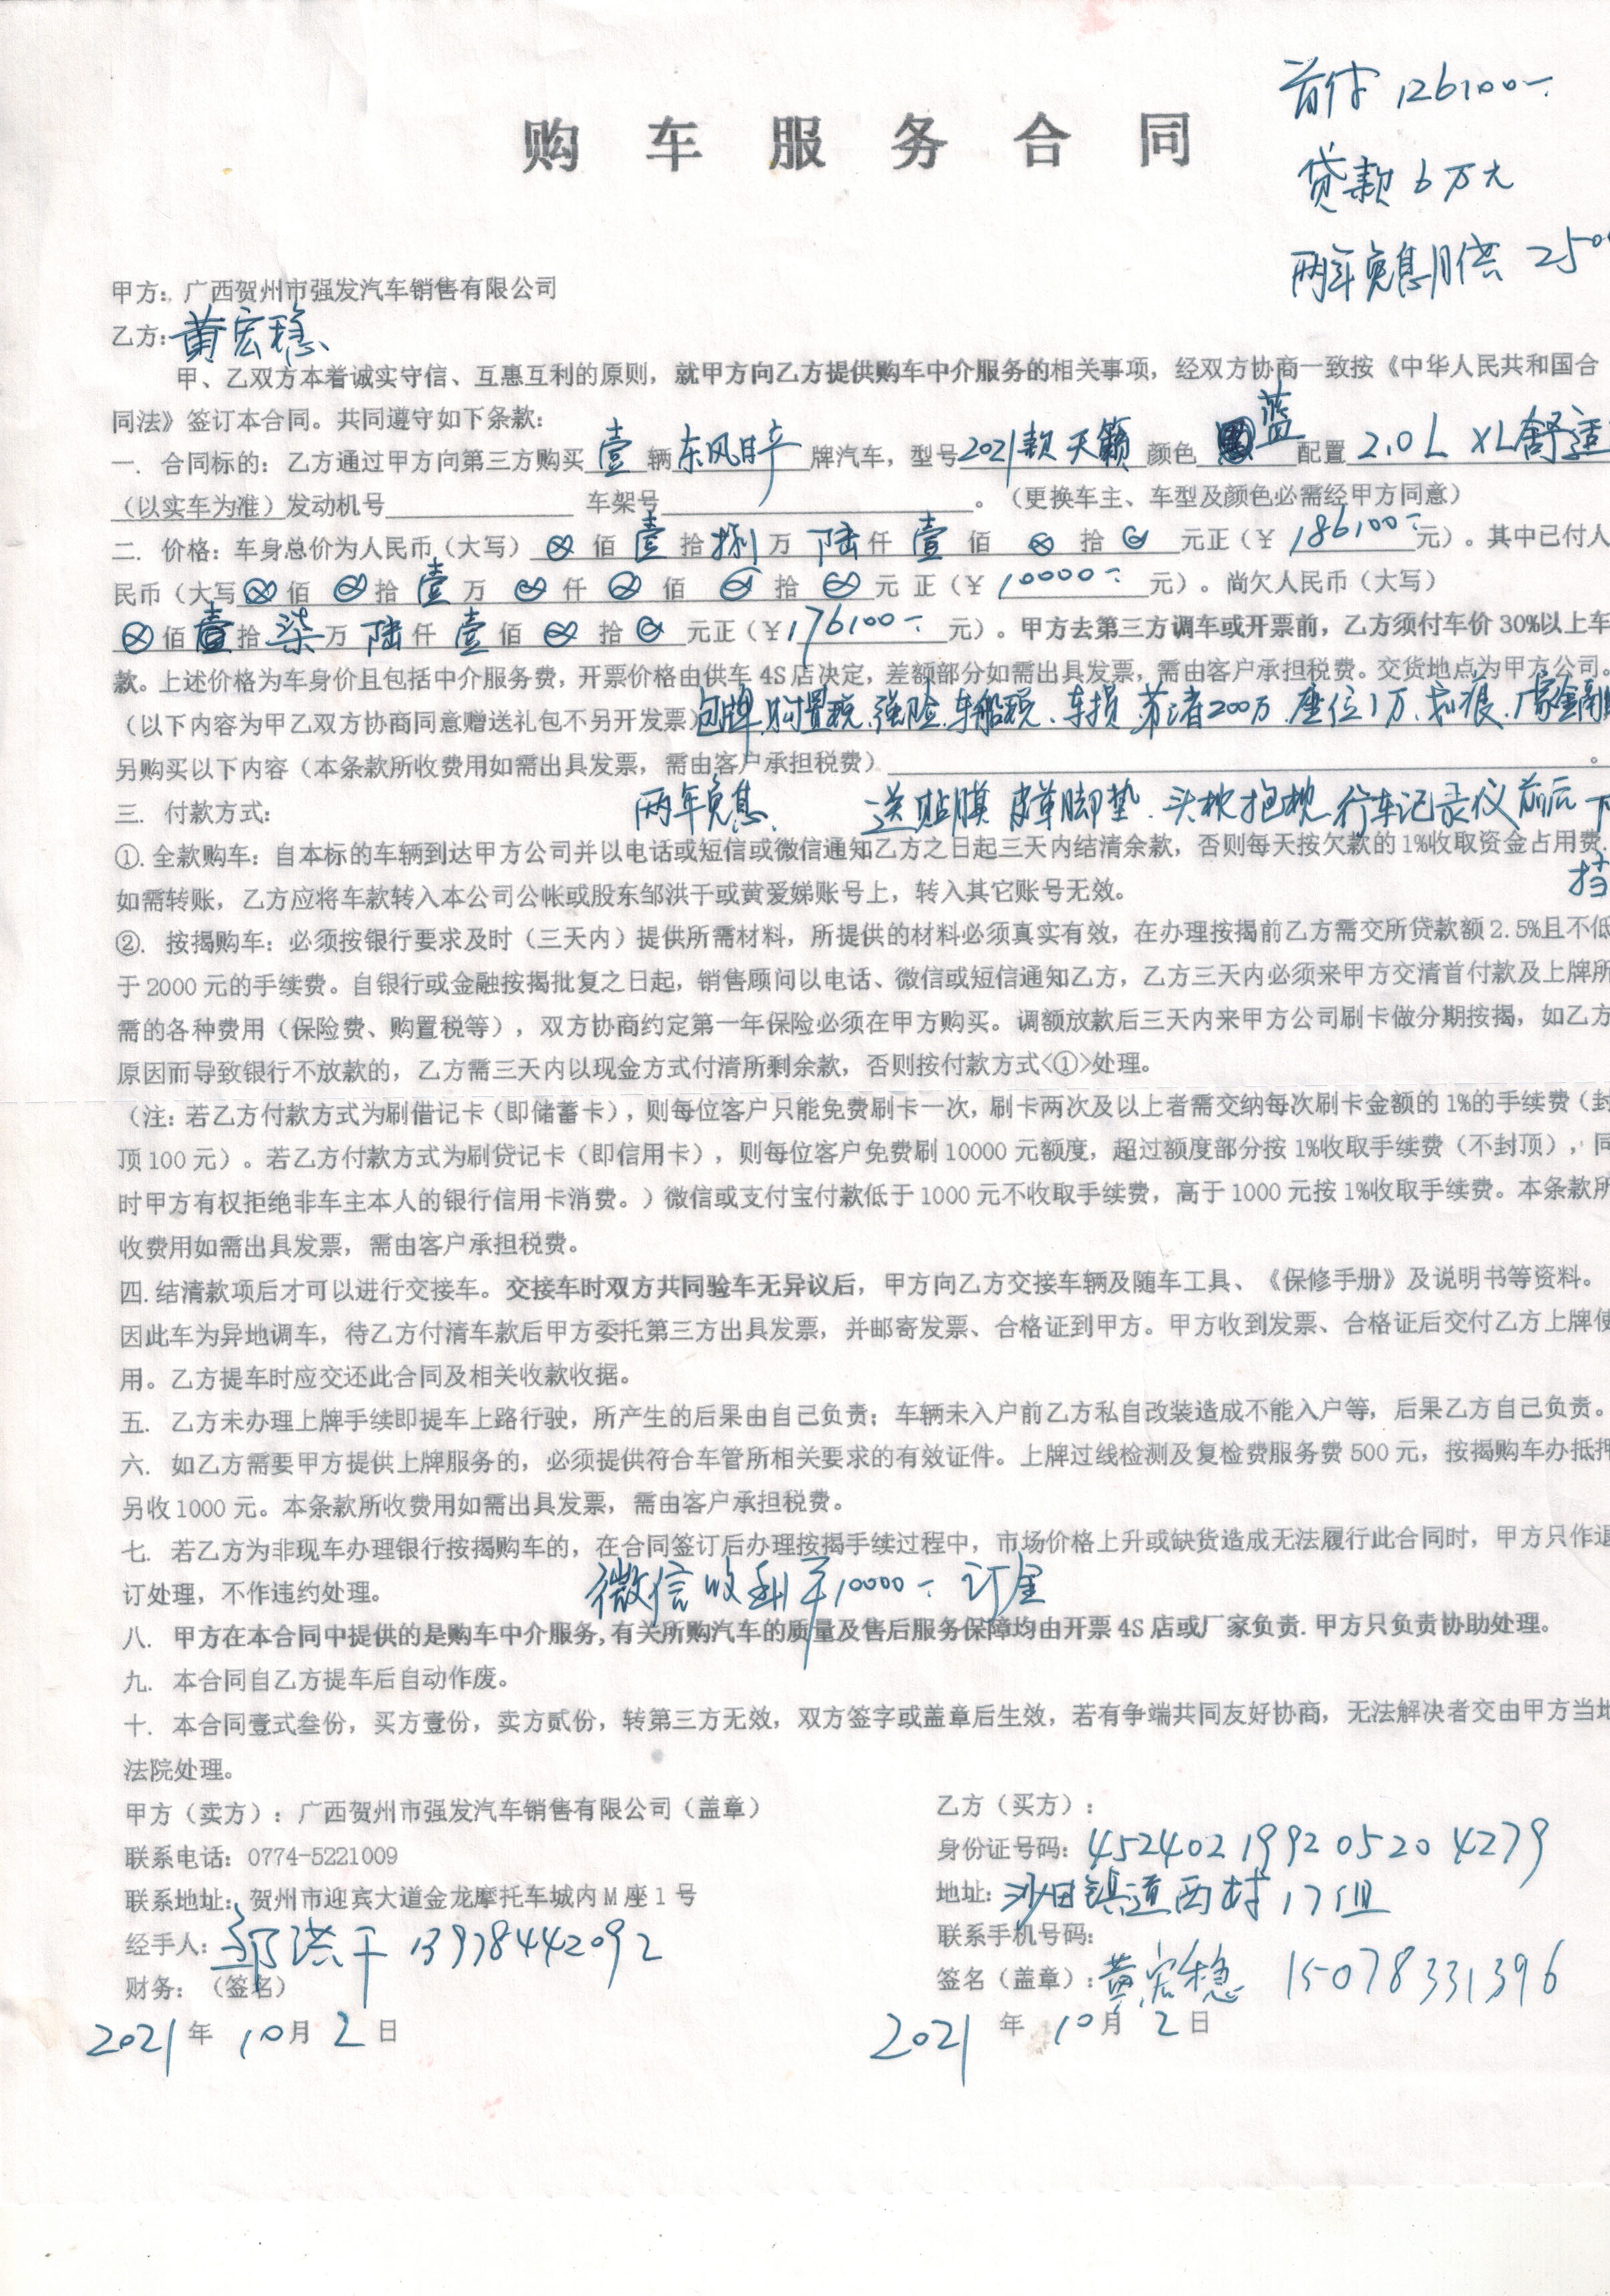 首付 126100一.
购车服务合同
贷款 6万元
两年免息月供 250
甲方：广西贺州市强发汽车销售有限公司
乙方：黄宏稳
甲、乙双方本着诚实守信、互惠互利的原则，就甲方向乙方提供购车中介服务的相关事项，经双方协商一致按《中华人民共和国合
同法》签订本合同。共同遵守如下条款：
一. 合同标的：乙方通过甲方向第三方购买 壹 辆 东风日产 牌汽车，型号 2021款天籁 颜色 蓝 配置 2.0L XL舒适
（以实车为准）发动机号 车架号 。（更换车主、车型及颜色必需经甲方同意）
二. 价格：车身总价为人民币（大写）⊗ 佰 壹 拾 捌 万 陆 仟 壹 佰 ⊗ 拾 ⊗ 元正（￥ 186100一. 元）。其中已付人
民币（大写 ⊗ 佰 ⊗ 拾 壹 万 ⊗ 仟 ⊗ 佰 ⊗ 拾 ⊗ 元 正（￥ 10000一. 元）。尚欠人民币（大写）
⊗ 佰 壹 拾 柒 万 陆 仟 壹 佰 ⊗ 拾 ⊗ 元正（￥ 176100一. 元）。甲方去第三方调车或开票前，乙方须付车价 30%以上车
款。上述价格为车身价且包括中介服务费，开票价格由供车 4S 店决定，差额部分如需出具发票，需由客户承担税费。交货地点为甲方公司。
（以下内容为甲乙双方协商同意赠送礼包不另开发票）包牌.购置税.强险.车船税.车损 第三者200万.座位1万.划痕.厂家金融
另购买以下内容（本条款所收费用如需出具发票，需由客户承担税费） 。
三. 付款方式： 两年免息. 送贴膜 皮革脚垫.头枕抱枕 行车记录仪 前后 下
①. 全款购车：自本标的车辆到达甲方公司并以电话或短信或微信通知乙方之日起三天内结清余款，否则每天按欠款的 1%收取资金占用费.
挡
如需转账，乙方应将车款转入本公司公帐或股东邹洪干或黄爱娣账号上，转入其它账号无效。
②. 按揭购车：必须按银行要求及时（三天内）提供所需材料，所提供的材料必须真实有效，在办理按揭前乙方需交所贷款额 2.5%且不低
于 2000 元的手续费。自银行或金融按揭批复之日起，销售顾问以电话、微信或短信通知乙方，乙方三天内必须来甲方交清首付款及上牌所
需的各种费用（保险费、购置税等），双方协商约定第一年保险必须在甲方购买。调额放款后三天内来甲方公司刷卡做分期按揭，如乙方
原因而导致银行不放款的，乙方需三天内以现金方式付清所剩余款，否则按付款方式<①>处理。
（注：若乙方付款方式为刷借记卡（即储蓄卡），则每位客户只能免费刷卡一次，刷卡两次及以上者需交纳每次刷卡金额的 1%的手续费（封
顶 100 元）。若乙方付款方式为刷贷记卡（即信用卡），则每位客户免费刷 10000 元额度，超过额度部分按 1%收取手续费（不封顶），同
时甲方有权拒绝非车主本人的银行信用卡消费。）微信或支付宝付款低于 1000 元不收取手续费，高于 1000 元按 1%收取手续费。本条款所
收费用如需出具发票，需由客户承担税费。
四. 结清款项后才可以进行交接车。交接车时双方共同验车无异议后，甲方向乙方交接车辆及随车工具、《保修手册》及说明书等资料。
因此车为异地调车，待乙方付清车款后甲方委托第三方出具发票，并邮寄发票、合格证到甲方。甲方收到发票、合格证后交付乙方上牌使
用。乙方提车时应交还此合同及相关收款收据。
五. 乙方未办理上牌手续即提车上路行驶，所产生的后果由自己负责；车辆未入户前乙方私自改装造成不能入户等，后果乙方自己负责。
六. 如乙方需要甲方提供上牌服务的，必须提供符合车管所相关要求的有效证件。上牌过线检测及复检费服务费 500 元，按揭购车办抵押
另收 1000 元。本条款所收费用如需出具发票，需由客户承担税费。
七. 若乙方为非现车办理银行按揭购车的，在合同签订后办理按揭手续过程中，市场价格上升或缺货造成无法履行此合同时，甲方只作退
订处理，不作违约处理。 微信收到 10000一. 订金
八. 甲方在本合同中提供的是购车中介服务,有关所购汽车的质量及售后服务保障均由开票 4S 店或厂家负责.甲方只负责协助处理。
九. 本合同自乙方提车后自动作废。
十. 本合同壹式叁份，买方壹份，卖方贰份，转第三方无效，双方签字或盖章后生效，若有争端共同友好协商，无法解决者交由甲方当地
法院处理。
甲方（卖方）：广西贺州市强发汽车销售有限公司（盖章） 乙方（买方）：
联系电话：0774-5221009 身份证号码：452402199205204279
联系地址：贺州市迎宾大道金龙摩托车城内 M 座 1 号 地址：沙田镇道西村17组
经手人：邹洪干 13978442092 联系手机号码：
财务：（签名） 签名（盖章）：黄宏稳 15078331396
2021 年 10 月 2 日 2021 年 10 月 2 日